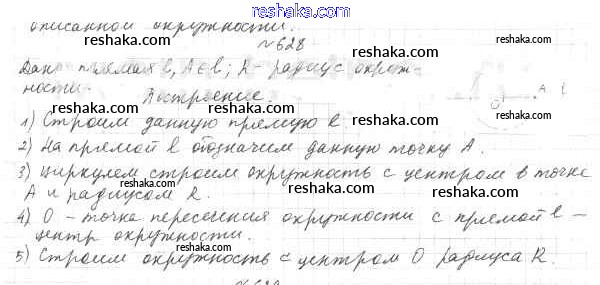 reshaka.com
описанной окружности.
№628
reshaka.com reshaka.com
Дано: прямая l, A∈l; R - радиус окруж-
ности.
reshaka.com
Построение.
A l
O
1) Строим данную прямую l.
2) На прямой l обозначим данную точку A.
reshaka.com reshaka.com
3) Циркулем строим окружность с центром в точке
A и радиусом R.
reshaka.com
4) O - точка пересечения окружности с прямой l -
центр окружности.
reshaka.com reshaka.com
5) Строим окружность с центром O радиуса R.
reshaka.com